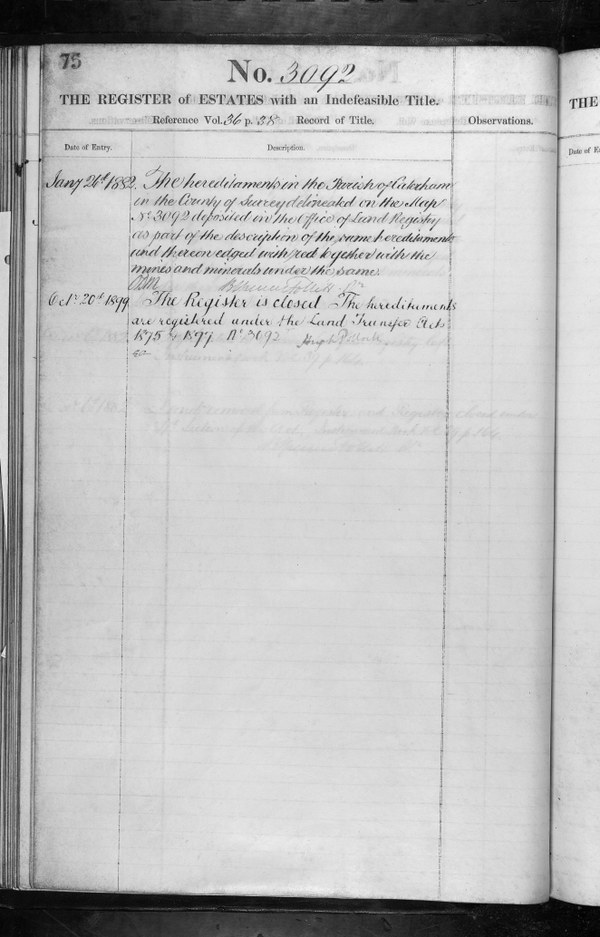 75
No. 3092
THE REGISTER of ESTATES with an Indefeasible Title.
Reference Vol. 36 p. 38 Record of Title.
Observations.
Date of Entry.
Description.
Jany 24th 1882. The hereditaments in the Parish of Caterham
in the County of Surrey delineated on the Map
No 3092 deposited in the Office of Land Registry
as part of the description of the same hereditaments
and thereon edged with red together with the
mines and minerals under the same.
Octr 20th 1899 The Register is closed The hereditaments
are registered under the Land Transfer Acts
1875 & 1897 No 3092
THE
Date of E